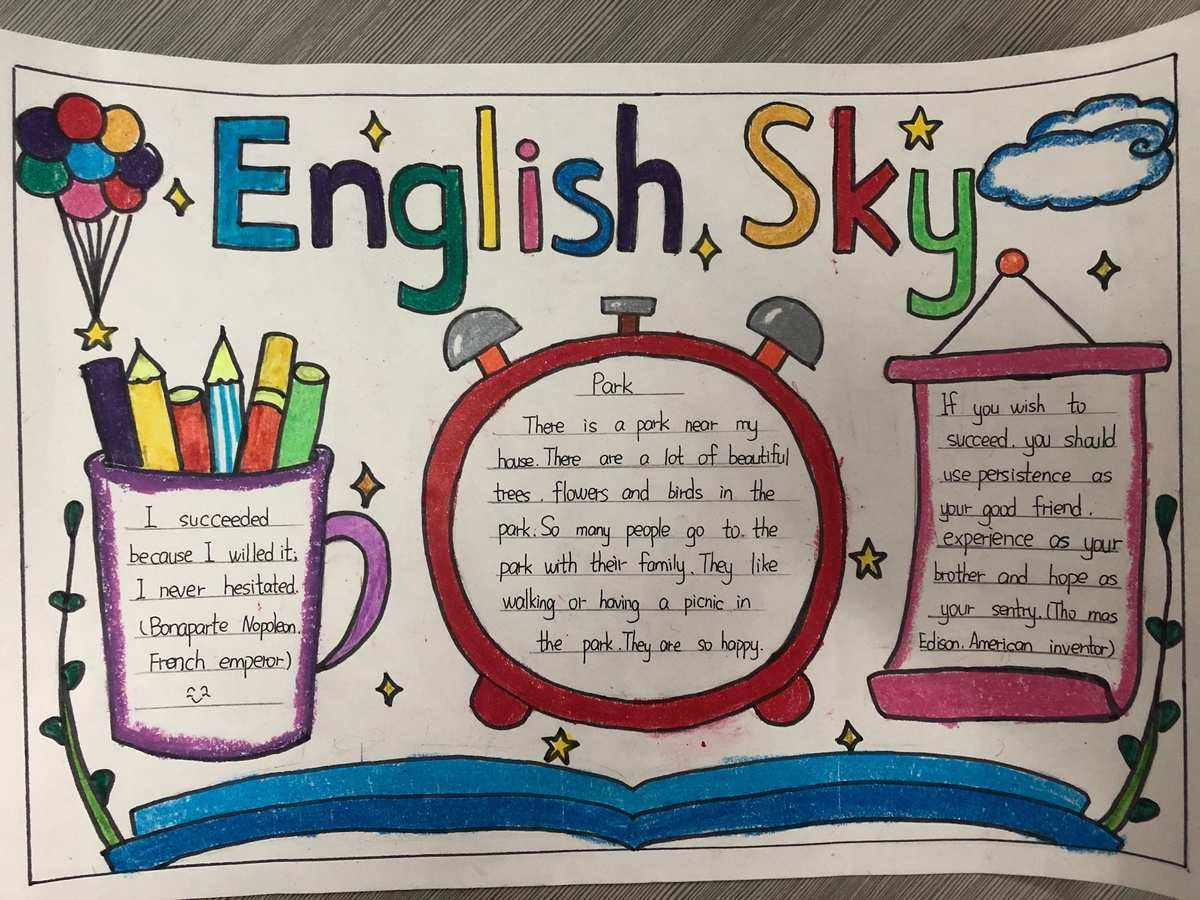 English Sky
I succeeded
because I willed it;
I never hesitated.
(Bonaparte Nopoleon.
French emperor)
Park
There is a park near my
house. There are a lot of beautiful
trees. flowers and birds in the
park. So many people go to. the
park with their family. They like
walking or having a picnic in
the park. They are so happy.
If you wish to
succeed. you should
use persistence as
your good friend.
experience as your
brother and hope as
your sentry. (Tho mas
Edison. American inventor)